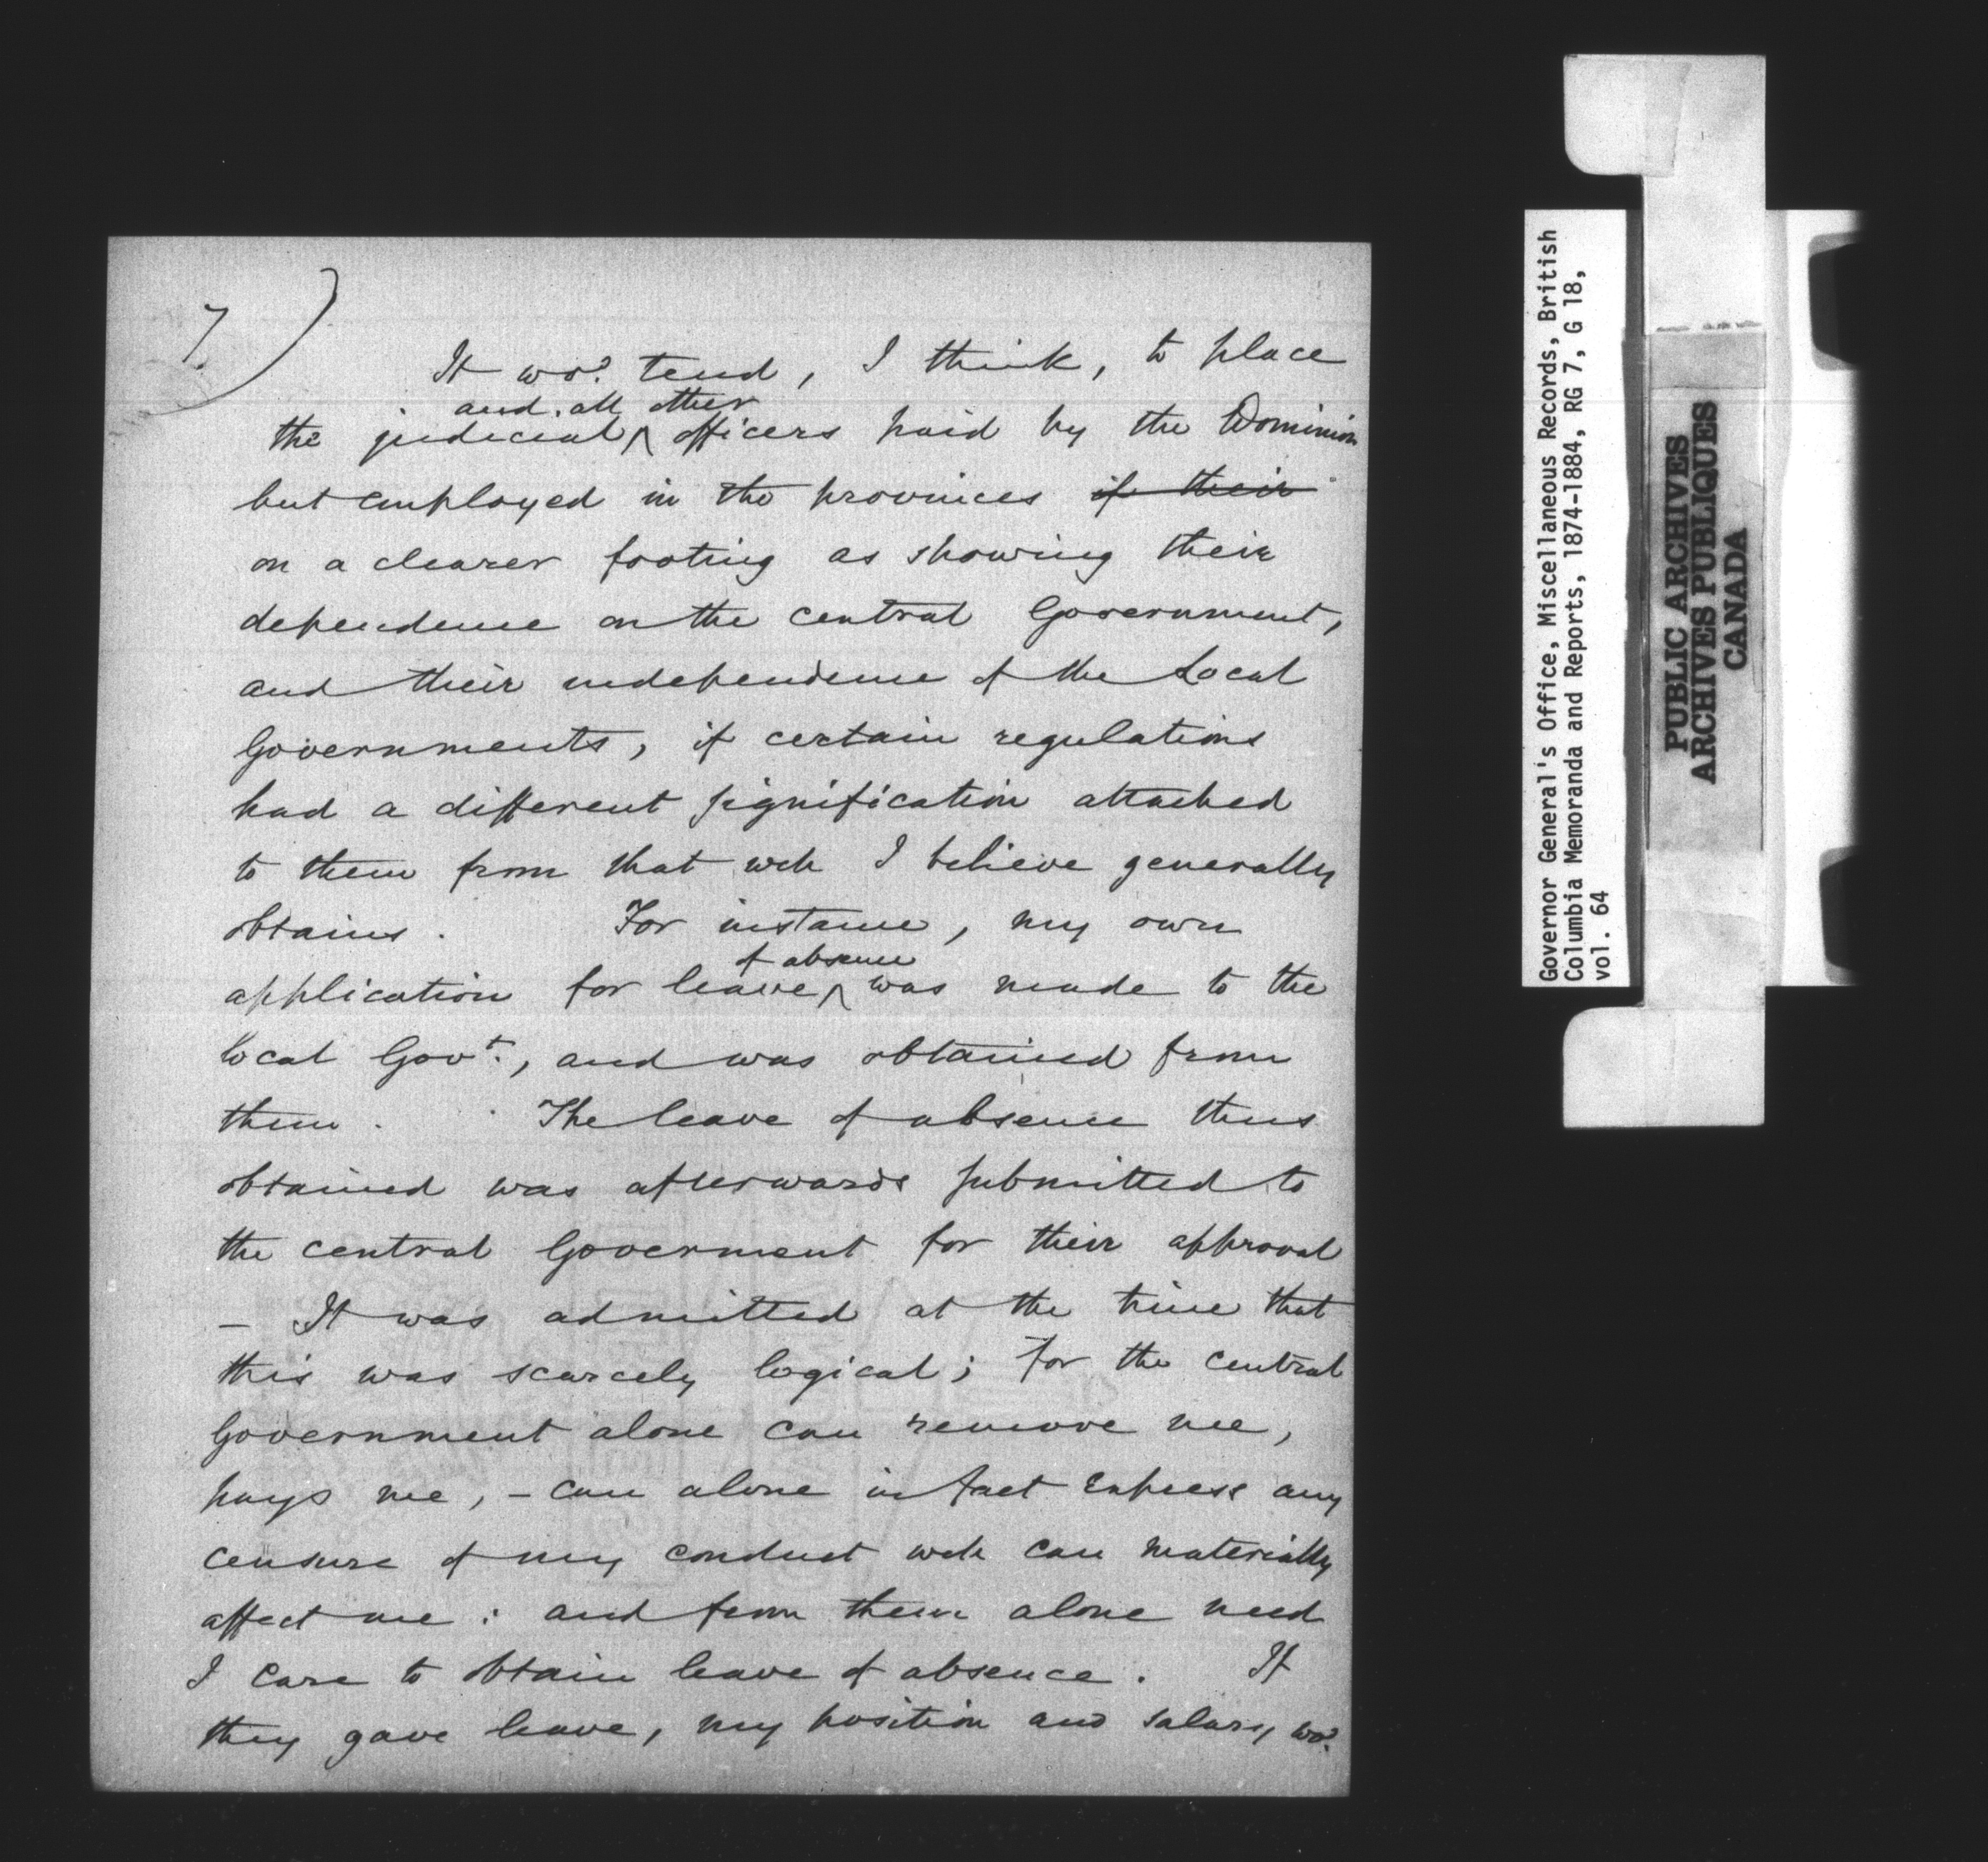 7.)
It wod. tend, I think, to place
and all other
the judicial ^ officers paid by the Dominion
but employed in the provinces if their
on a clearer footing as showing their
dependence on the central Government,
and their independence of the Local
Governments, if certain regulations
had a different signification attached
to them from that wch I believe generally
obtains. For instance, my own
of absence
application for leave ^ was made to the
local Govt., and was obtained from
them. The leave of absence thus
obtained was afterwards submitted to
the central Government for their approval
– It was admitted at the time that
this was scarcely logical; for the central
Government alone can remove me,
pays me, – can alone in fact express any
censure of my conduct wch can materially
affect me: and from them alone need
I care to obtain leave of absence. If
they gave leave, my position and salary wod.
Governor General's Office, Miscellaneous Records, British
Columbia Memoranda and Reports, 1874-1884, RG 7, G 18,
vol. 64
PUBLIC ARCHIVES
ARCHIVES PUBLIQUES
CANADA